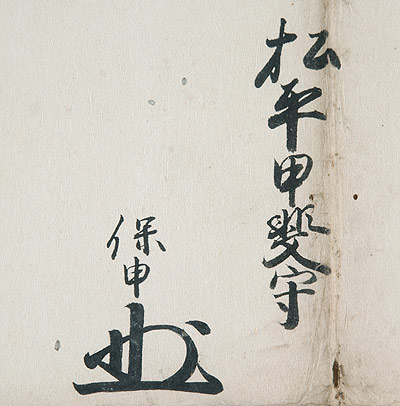 松平甲斐守
保申